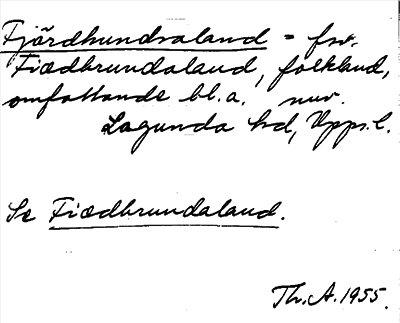 Fjärdhundraland = fsv.
Fiædhrundaland, folkland,
omfattande bl.a. nuv.
Lagunda hd, Upps.l.
Se Fiædhrundaland.
Th.A.1955.